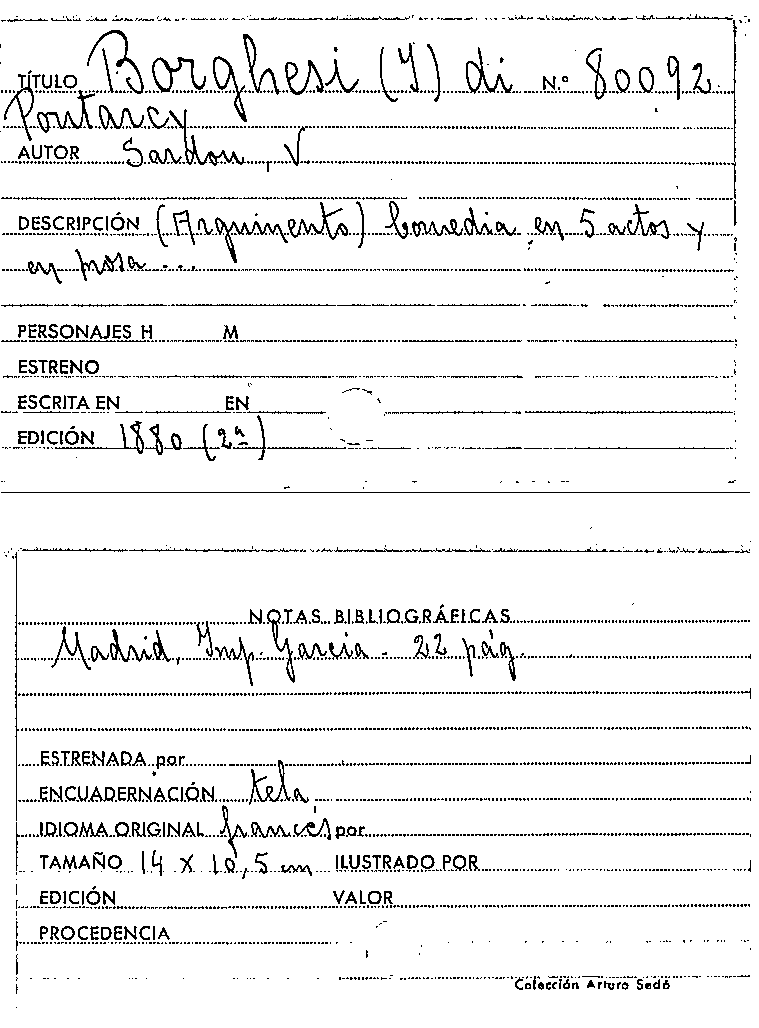 TÍTULO Borghesi (I) di N.º 80092
Pontarcy
AUTOR Sardou, V
DESCRIPCIÓN (Argumento) Comedia en 5 actos y
en prosa ...
PERSONAJES H M
ESTRENO
ESCRITA EN EN
EDICIÓN 1880 (2ª)
NOTAS BIBLIOGRÁFICAS
Madrid, Imp. Garcia - 22 pág.
ESTRENADA por
ENCUADERNACIÓN tela
IDIOMA ORIGINAL francés por
TAMAÑO 14 x 10,5 cm ILUSTRADO POR
EDICIÓN VALOR
PROCEDENCIA
Colección Arturo Sedó